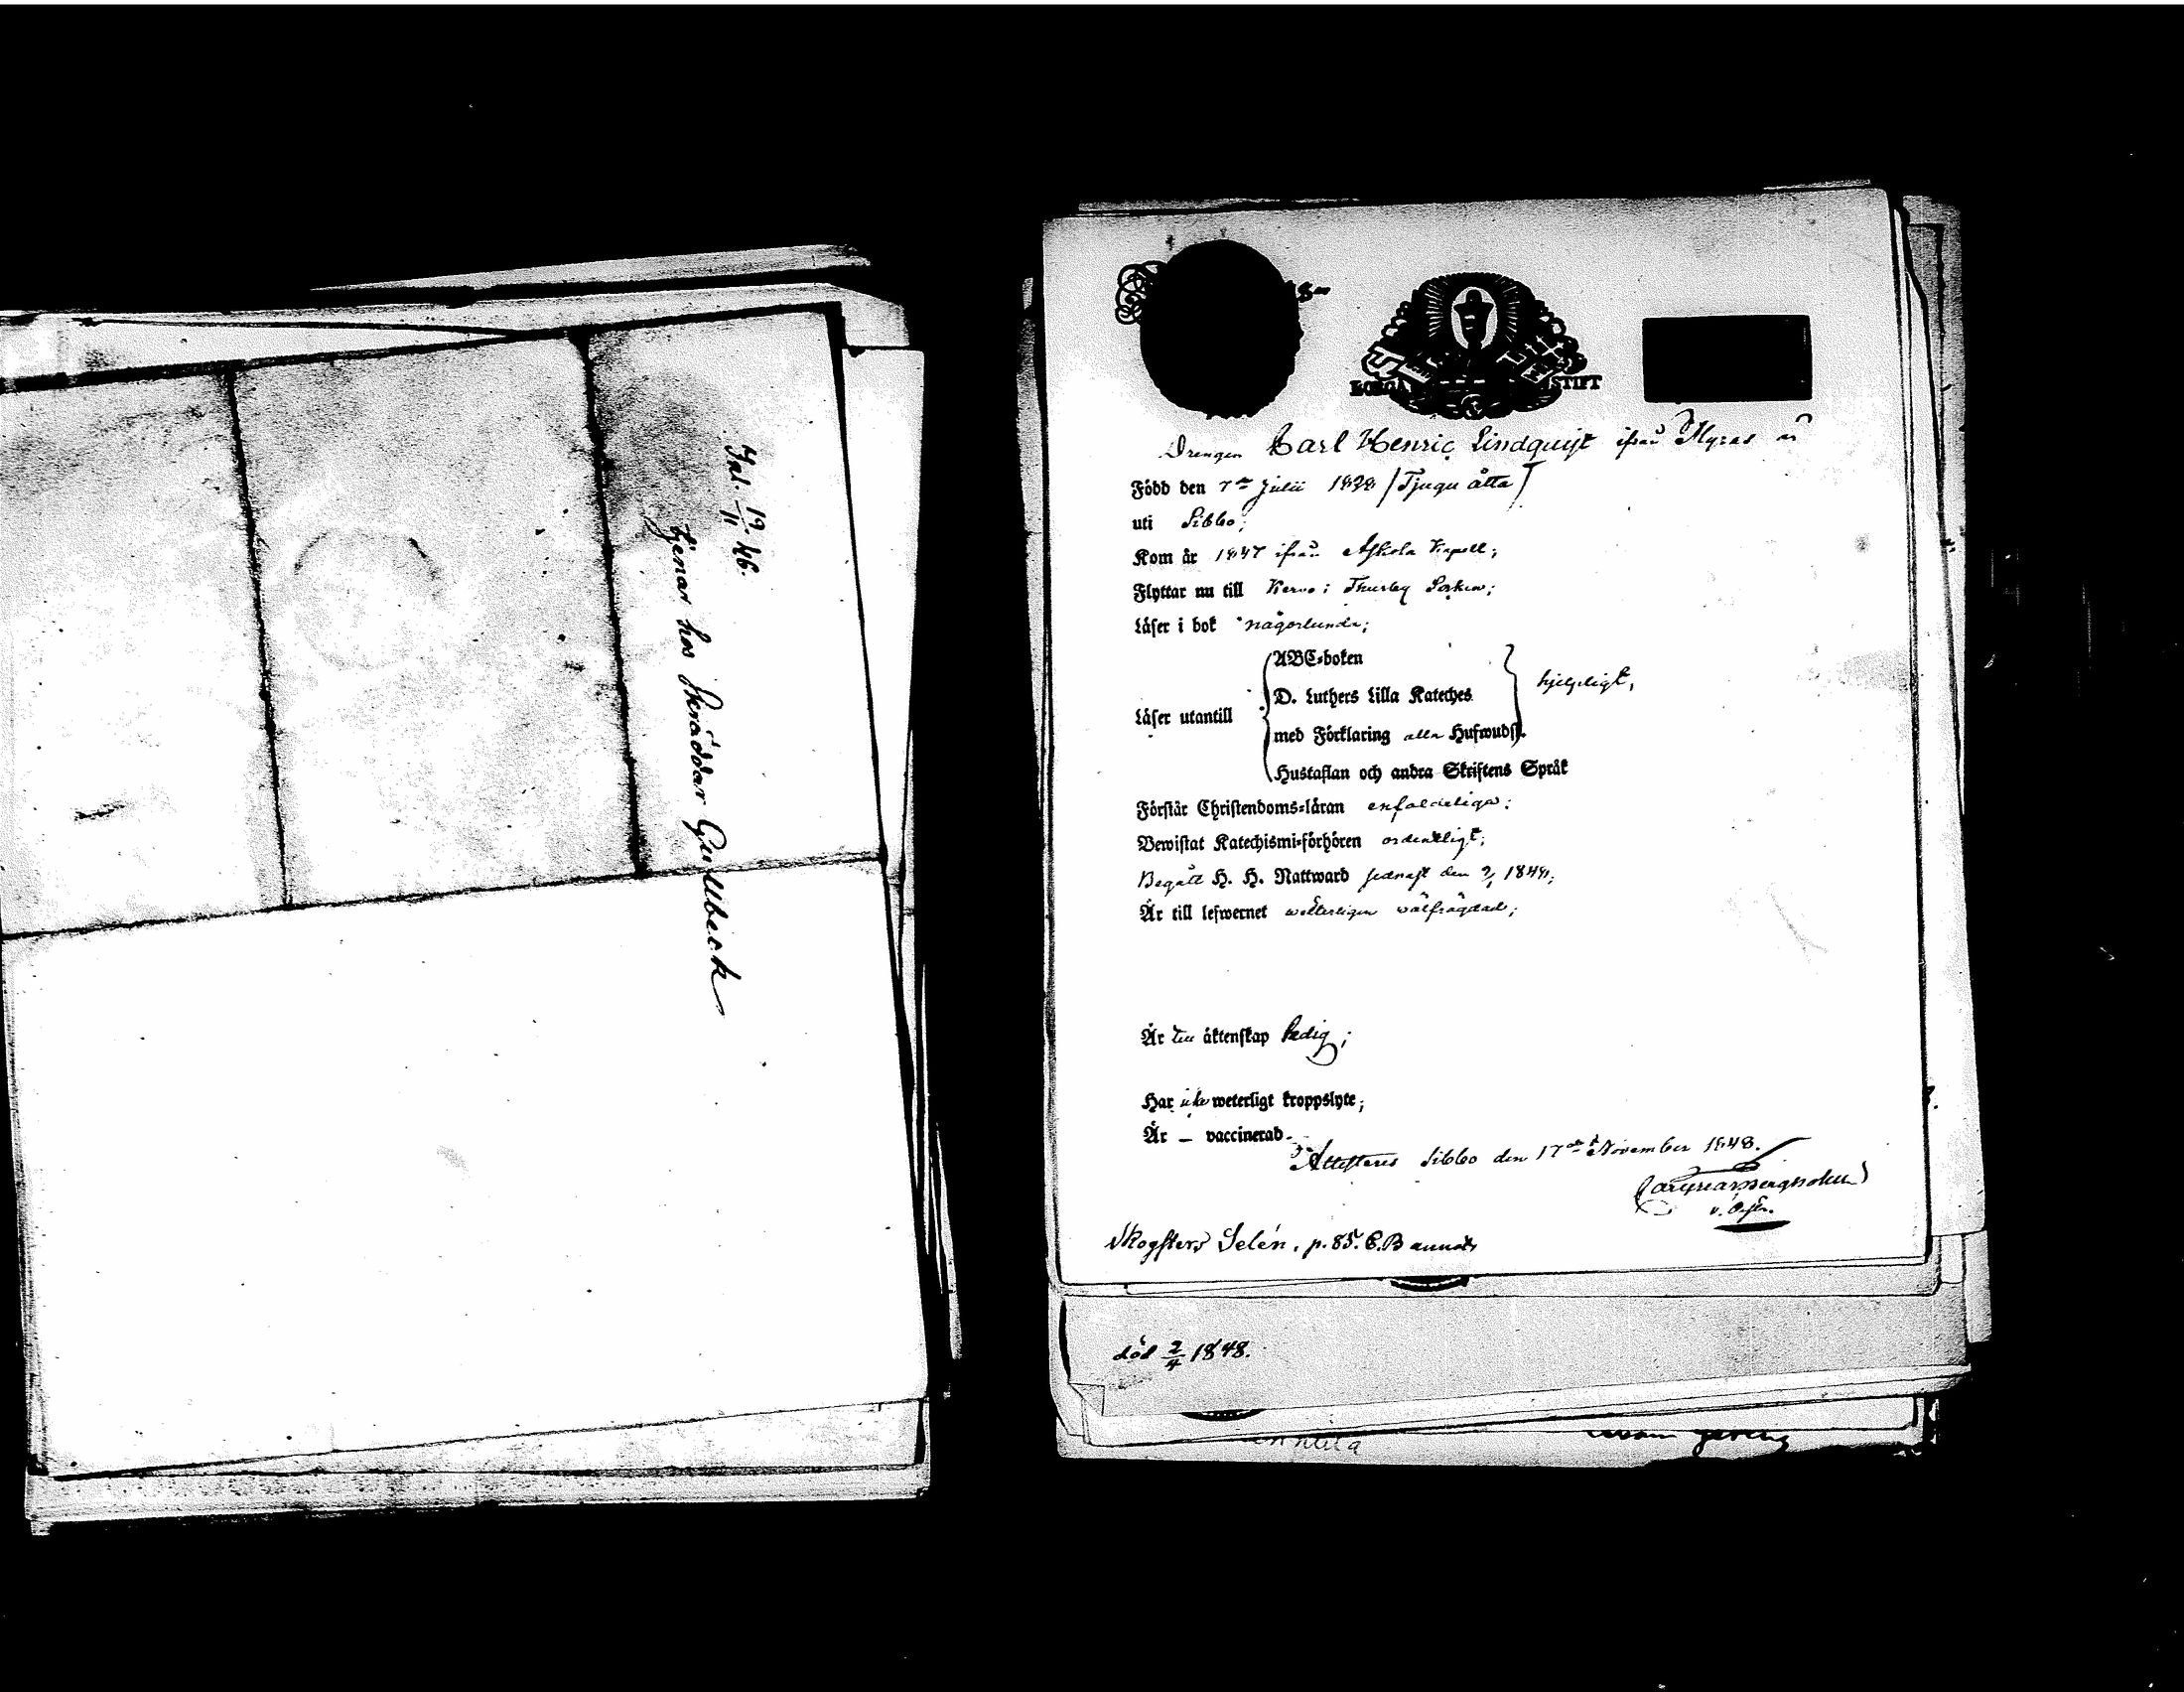 Jal. 19/11 46.
tjenar hos skräddar Gullbeck
BORGÅ STIFT
Drengen Carl Henric Lindquist ifrån Myras är
Född den 7de Julii 1828 /Tjugu åtta/
uti Sibbo;
Kom år 1847 ifrån Askola Kapell;
Flyttar nu till Kervo i Thusby Socken;
Läser i bok någorlunda;
ABC-boken
D. Luthers Lilla Kateches
Läser utantill
hjelpligt,
med Förklaring alla Hufwudst.
Hustaflan och andra Skriftens Språk
Förstår Christendoms-läran enfaldeliga;
Bewistat Katechismi-förhören ordentligt;
Begått H. H. Nattward sednast den 1848;
Är till lefwernet wetterligen välfrägdad;
Är till äktenskap ledig;
Har icke weterligt kroppslyte;
Är – vaccinerad.
Attesteras Sibbo den 17de November 1848.
Selén, p. 85. C.B
död 2/4 1848.